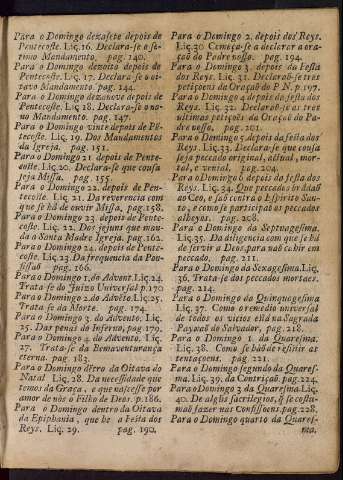 Para o Domingo dezasete depois de
Pentecoste. Liç. 16. Declara-se o se-
timo Mandamento. pag. 140.
Para o Domingo dezoito depois de
Pentecoste. Liç. 17. Declara-se o oi-
tavo Mandamento. pag. 144.
Para o Domingo dezanove depois de
Pentecoste. Liç. 18. Declara-se o no-
no Mandamento. pag. 147.
Para o Domingo vinte depois de Pē-
tecoste. Liç. 19. Dos Mandamentos
da Igreja. pag. 151.
Para o Domingo 21 depois de Pente-
coste. Liç. 20. Declara-se que cousa
seja Missa. pag. 155.
Para o Domingo 22. depois de Pen-
tecoste. Liç. 21. Da reverencia com
que se hà de ouvir Missa, pag. 158.
Para o Domingo 23. depois de Pente-
coste. Liç. 22. Dos jejuns que man-
da a Santa Madre Igreja. pag. 162.
Para o Domingo 24. depois de Pente-
coste. Liç. 23. Da frequencia da Con-
fissaõ pag. 166.
Para o Domingo 1. do Advent. Liç. 24.
Trata-se do Juizo Universal p. 170
Para o Domingo 2. do Advēto. Liç. 25.
Trata-se da Morte. pag. 174.
Para o Domingo 3. do Advento. Liç.
25. Das penas do Inferno, pag. 179.
Para o Domingo 4. do Advento, Liç.
27. Trata-se da Bemaventurança
eterna. pag. 183.
Para o Domingo dētro da Oitava do
Natal Liç. 28. Da necessidade que
temos da Graça, e que nascesse por
amor de nòs o Filho de Deos. p. 186.
Para o Domingo dentro da Oitava
da Epiphania, que he a Festa dos
Reys. Liç. 29. pag. 190,
Para o Domingo 2. depois dos Reys.
Liç. 30 Começa-se a declarar a ora-
çaõ do Padre nosso. pag. 194.
Para o Domingo 3. depois da Festa
dos Reys. Liç. 31. Declaraõ-se tres
petiçoens da Oraçaõ do P. N. p. 197.
Para o Domingo 4 depois da festa dos
Reys. Liç. 32. Declaraõ-se as tres
ultimas petiçoens da Oraçaõ do Pa-
dre nosso. pag. 201.
Para o Domingo 5 depois da festa dos
Reys. Liç. 33. Declara-se que cousa
seja peccado original, actual, mor-
tal, e venial, pag. 204.
Para o Domingo 6 depois da festa dos
Reys. Liç. 34. Que peccados brádaõ
ao Ceo, e saõ contra o Espirito San-
to, e como se participaõ os peccados
alheyos. pag. 208.
Para o Domingo da Septuagesima.
Liç. 35. Da diligencia com que se hà
de servir a Deos, para naõ cahir em
peccado. pag. 211.
Para o Domingo da Sexagesima. Liç.
36. Trata-se dos peccados mortaes.
pag. 214.
Para o Domingo da Quinquagesima
Liç. 37. Como o remedio universal
de todos os vicios està na Sagrada
Payxaõ do Salvador, pag. 218.
Para o Domingo 1. da Quaresma.
Liç. 38. Como se hàõ de resistir as
tentaçoens. pag. 221.
Para o Domingo segundo da Quares-
ma. Liç. 39. da Contriçaõ. pag. 224.
Para o Domingo 3 da Quaresma. Liç.
40. De algūs sacrilegios, q̃ se costu-
maõ fazer nas Confissoens. pag. 228.
Para o Domingo quarto da Quares-
ma.